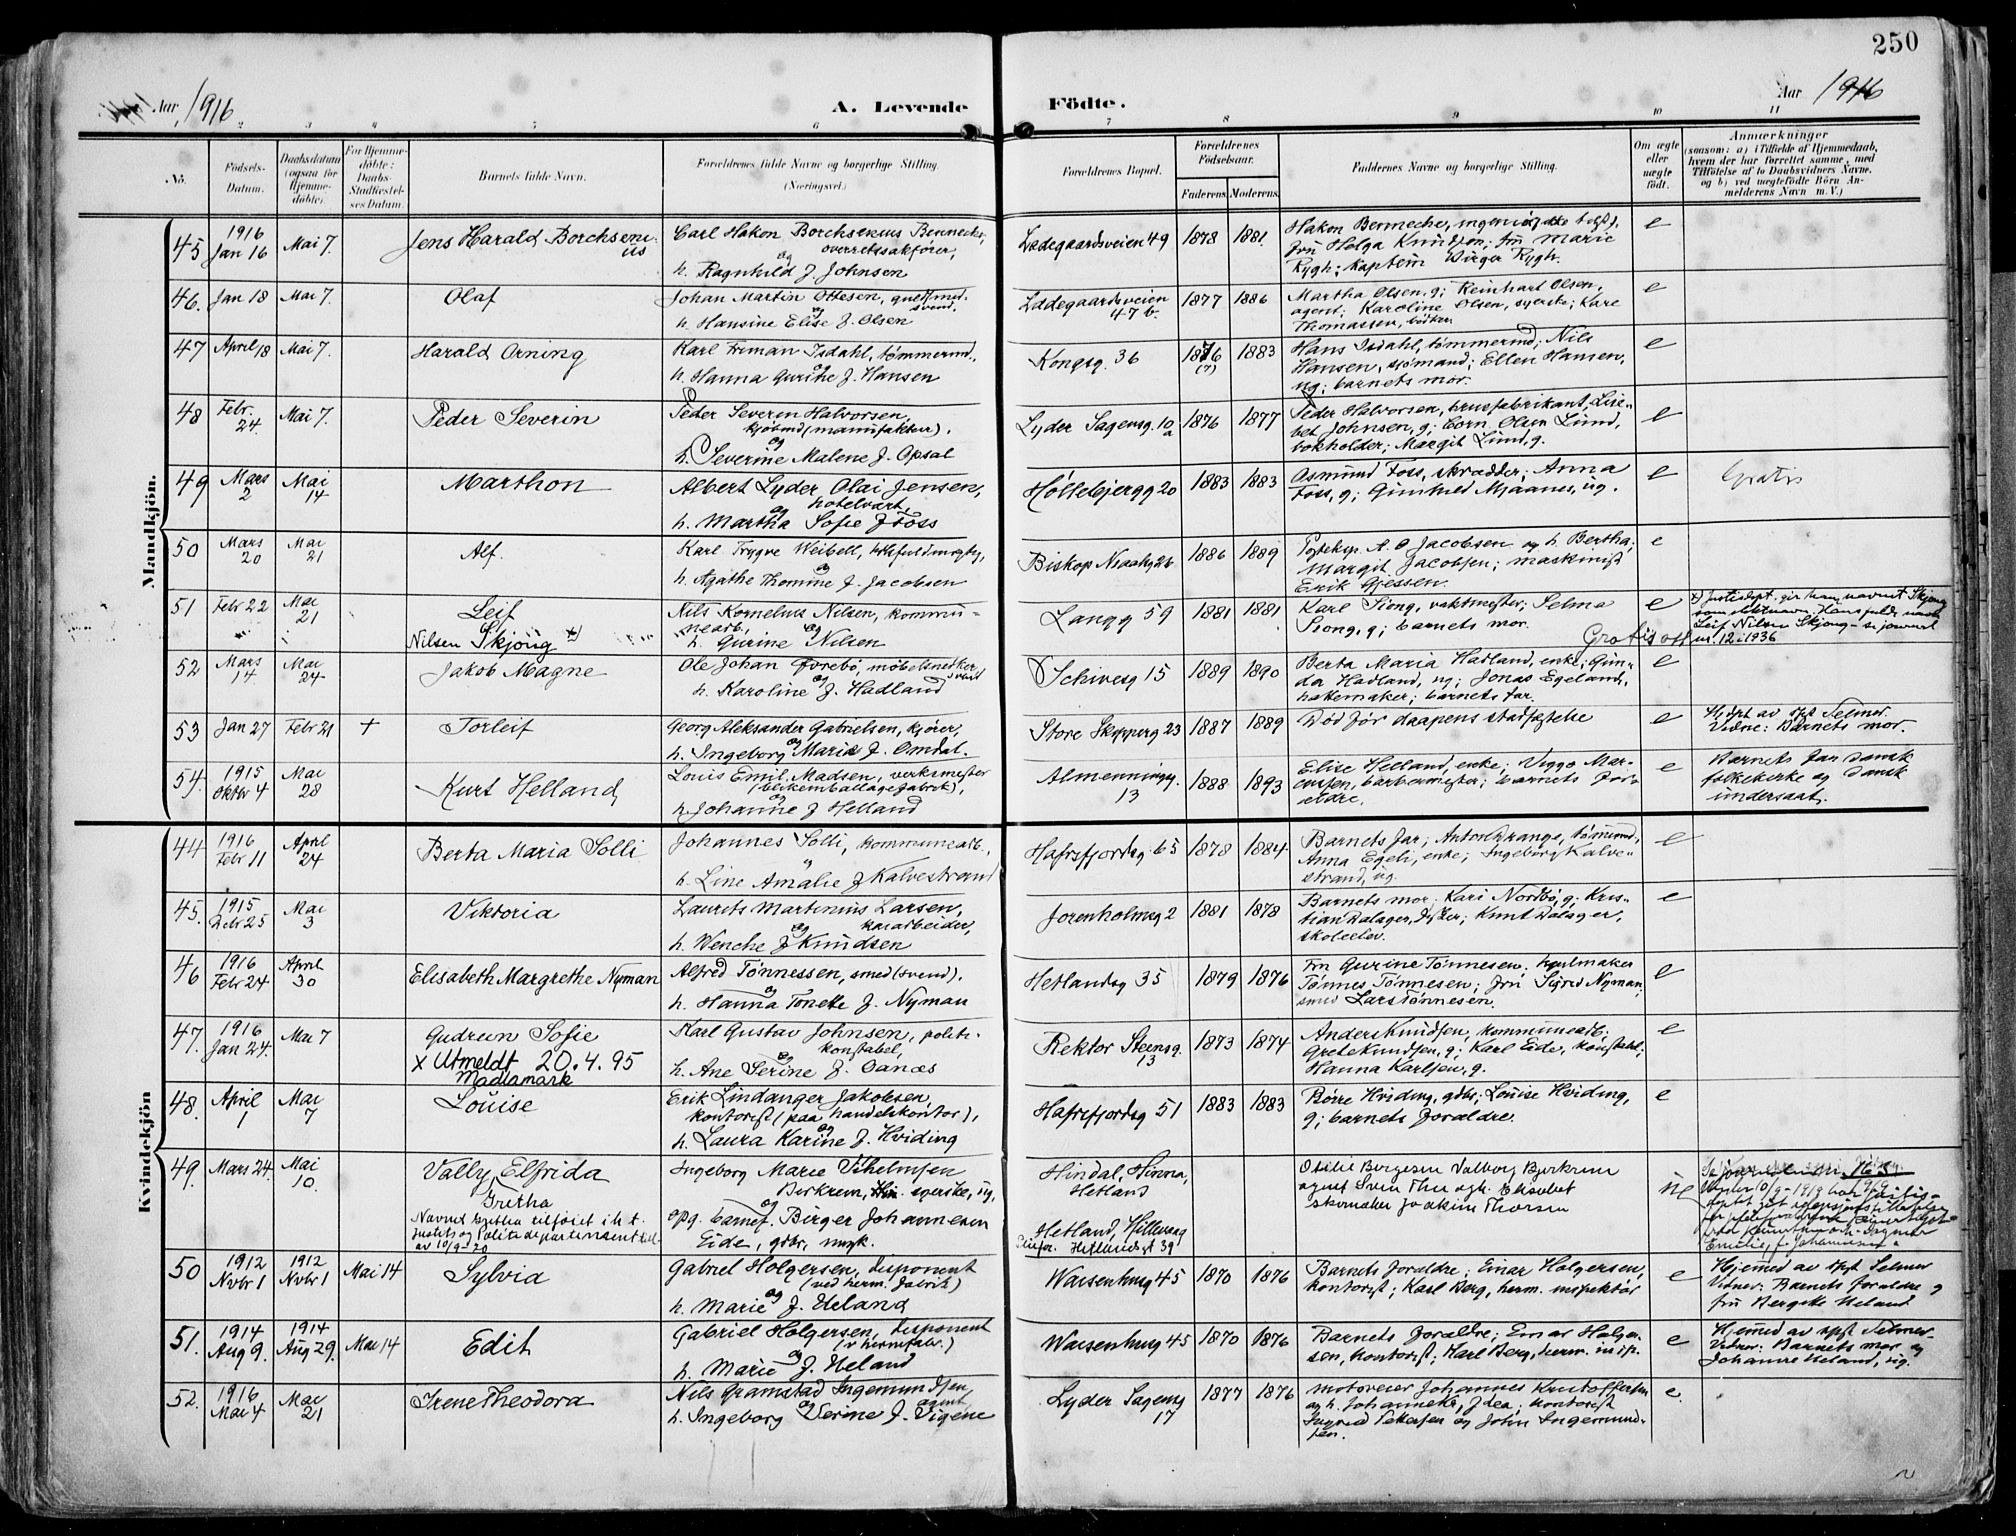 250
Aar 1916
A. Levende Födte.
Aar 1916
2 3 4 5 6 7 8 9 10 11
No.
Födsels-Datum.
Daabsdatum (ogsaa for Hjemme-döbte).
For Hjemme-döbte: Daabs-Stadfæstelses Datum.
Barnets fulde Navn.
Forældrenes fulde Navne og borgerlige Stilling.
(Næringsvei.)
Forældrenes Bopæl.
Forældrenes Födselsaar.
Faderens. Moderens.
Faddernes Navne og borgerlige Stilling.
Om ægte eller uægte födt.
Anmærkninger
(saasom: a) i Tilfælde af Hjemmedaab,
hvem der har forrettet samme, med
Tilföielse af to Daabsvidners Navne.
og b) ved uægtefödte Börn An-
melderens Navn m. V.)
Mandkjön.
45 1916 Jan 16 Mai 7. Jens Harald Borchsenius
Carl Hakon Borchsenius Bennecke,
overretssakfører,
og
h. Ragnhild f. Johnsen
Ladegaardsveien 49 1878 1881.
Hakon Bennecke, ingeniør
fru Helga Knudsen; fru Marie
Rygh; kaptein Birger Rygh.
e
46. Jan 18 Mai 7. Olaf
Johan Martin Ottesen, guldsmed-
svend,
og
h. Hansine Elise f. Olsen
Ladegaardsveien
47 b. 1877 1886
Martha Olsen, g; Reinhart Olsen,
agent; Karoline Olsen, syerske; Kare
Thomassen, bødker.
e
47 April 18 Mai 7. Harald Orning
Karl Firman Isdahl, tømmermd.,
og
h. Hanna Gurine f. Hansen
Kongsg. 36 1876 (7) 1883
Hans Isdahl, tømmermd; Nils
Hansen, sjømand; Ellen Hansen,
ug; barnets mor.
e
48 Febr. 24. Mai 7. Peder Severin
Peder Severin Halvorsen,
kjøbmd (manufaktur).
og
h. Severine Malene f. Opsal
Lyder Sagensg. 10 a 1876 1877
Peder Halvorsen, brusfabrikant, Lise-
bet Johnsen, g; Olsen Lund,
bokholder; Margit Lund, g.
e
49 Mars 2 Mai 14 Marthon
Albert Lyder Olai Jensen,
hotelvært,
og
h. Martha Sofie f. Foss
Høllebjergg 20 1883 1883
Asmund Foss, skrædder; Anna
Foss, g; Gunhild Mjaanes, ug.
e Gratis
50 Mars 20 Mai 21 Alf.
Karl Trygve Weibell,
og
h. Agathe Thomine f. Jacobsen
Biskop Njaalsg 26 1886 1889
Posteksp. A. O Jacobsen og h. Bertha;
Margit Jacobsen; maskinist
Erik Gjessen.
e
51 Febr 22 Mai 21 Leif
Nilsen Skjong x)
Nils Kornelius Nilsen, kommu-
nearb,
og
h. Gurine Nilsen
Langg 59 1881 1881
Karl Siong, vaktmester; Selma
Siong, g; barnets mor.
e
x) Justisdept. gir ham navnet Skjong
som slektnavn. Hans fulde navn
Leif Nilsen Skjong - se journal
nr. 12 i 1936
Gratis att
52 Mars 14 Mai 24 Jakob Magne
Ole Johan Øvrebø, møbelsnedker
svend
og
h. Karoline f. Hadland
Schivesg 15 1889 1890
Berta Maria Hadland, enke; Gun-
da Hadland, ug; Jonas Egeland,
hattemaker; barnets far.
e
53 Jan 27 Febr 21 + Torleif
Georg Aleksander Gabrielsen, kjører,
og
h. Ingeborg Marie f. Omdal.
Store Skipperg 23 1887 1889
Død før daapens stadfæstelse
e
Hjdpt av spt Selmer.
Vidne: Barnets mor.
54. 1915 Oktbr 4 Mai 28 Kurt Helland
Louis Emil Madsen, verksmester
(blikemballagefabrik),
og
h. Johanne f Helland
Almenningg.
13 1888 1893
Elise Helland, enke; Viggo Mar-
cusen, barbermester; barnets for-
ældre.
e
Barnets far Dansk
folkekirke og Dansk
undersaat.
Kvindekjön
44 1916 Febr 11 April 24 Berta Maria Solli
Johannes Solli, kommunearb.,
h. Line Amalie f Kalvestrand
Hafrsfjordsg 65 1878 1884
Barnets far; Anton Orange, tømmermd,
Anna Egeli, enke; Ingeborg Kalve-
strand, ug.
e
45. 1915 Debr 25 Mai 3 Viktoria
Laurits Martinius Larsen,
kaiarbeider,
og
h. Wenche f Knudsen
Jorenholmeng 2 1881 1878
Barnets mor; Kari Nordbø, g; Kris-
tian Dalager, fisker; Knut Dalager,
skoleelev.
e
46 1916 Febr 24 April 30 Elisabeth Margrethe Nyman
Alfred Tønnessen, smed (svend).
og
h. Hanna Tonette f. Nyman
Hetlandsg 35 1879 1876
Fru Gurine Tønnesen, hjulmaker
Tønnes Tønnesen; fru Sigred Nyman;
smed Lars Tønnesen.
e
47. 1916 Jan 24. Mai 7 Gudrun Sofie
x Utmeldt 20.4.95
Madlamark
Karl Gustav Johnsen, politi-
konstabel,
og
h. Ane Serine f. Sanæs
Rektor Steensg.
13 1873 1874
Anders Knudsen, kommunearb;
Grete Knudsen, g; Karl Eide, konstabel;
Hanna Karlsen, g.
e
48. April 1 Mai 7 Louise
Erik Lindanger Jakobsen,
kontorist (paa handelskontor),
og
h. Laura Karine f. Hviding
Hafrsfjordsg 51 1883 1883
Børre Hviding, gdbr; Louise Hviding,
g; barnets forældre.
e
49. Mars 24. Mai 10. Vally Elfrida
Gretha
Navnet Gretha tilføiet iht.
Justits og Politidepartementet
av 10/9-20
Ingeborg Marie Vilhelmsen
Birkrem, syerske, ug,
og
opg. barnef. Birger Johannesen
Eide, gdbr, ungk.
Hindal, Hinna,
Hetland
Hetland, Hillevaag
Hetlandsst 39
Otilie Borgesen Valborg Bjerkrem
agent Sven Elisabet
skomaker Joakim Thorsen
ug
Under 10/9-1919 har justis-
50 1912 Novbr 1 1912 Novbr 1 Mai 14 Sylvia
Gabriel Holgersen, disponent
(ved herm. fabrik)
og
h. Marie f. Ueland
Waisenhusg 45 1870 1876
Barnets forældre; Einar Holgersen,
kontorist; Karl Berg, herm. inspektør
e
Hjemmed av spt Selmer
Vidner: Barnets forældre og
fru Bergitte Ueland
51. 1914 Aug 9. 1914 Aug 29. Mai 14 Edit
Gabriel Holgersen, disponent
(v hermfabr.)
og
h. Marie f. Ueland
Waisenhusg 45 1870 1876
Barnets forældre; Einar Holger-
sen, kontorist; Karl Berg, herm. insp.
e
Hjemmed av spt Selmer.
Vidner: Barnets mor og
Johanne Ueland, ug.
52. 1916 Mai 4 Mai 21 Irene Theodora
Nils Gramstad Ingemundsen,
agent
og
h. Ingeborg Serine f. Vigene
Lyder Sagensg
17 1877 1876
Motoreier Johannes Kristoffersen
og h. Johanneke, f dea; kontorist
Ingvald Pettersen og John Ingemund-
sen.
e